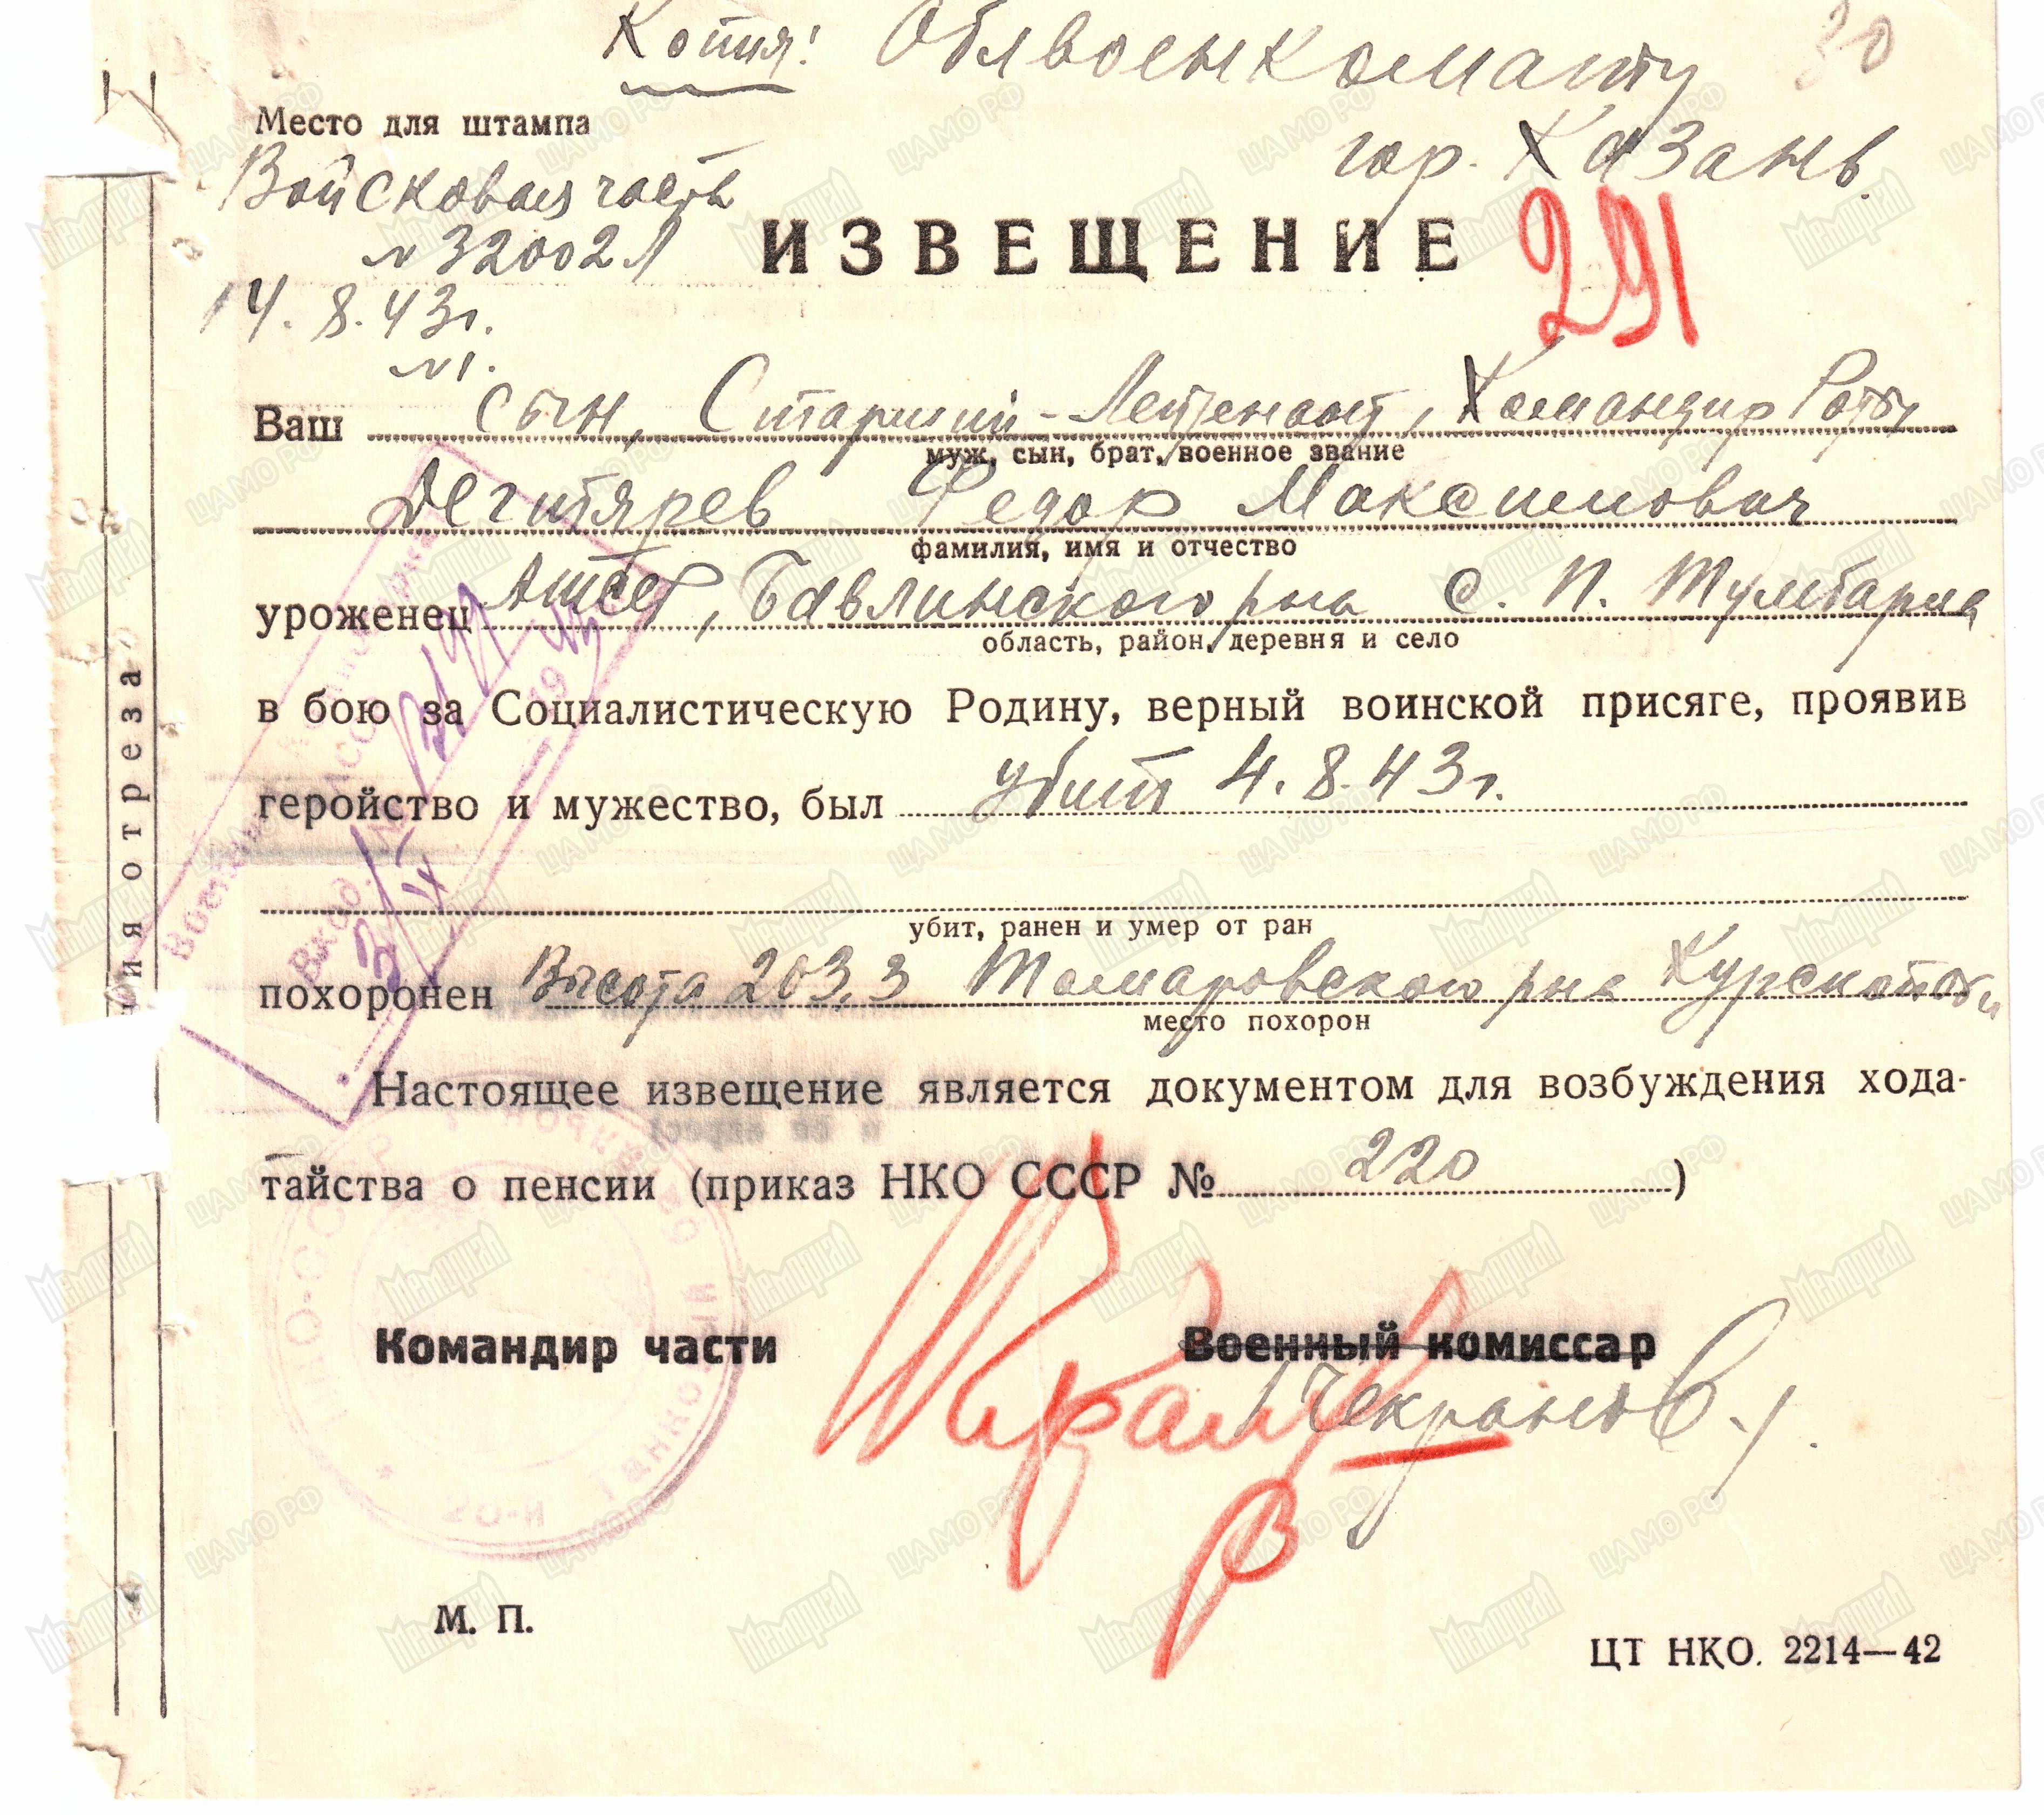 Копия: Облвоенкомату
30
гор. Казань.
Место для штампа
Войсковая часть
N 32002 Л
14.8.43г.
N1.
ИЗВЕЩЕНИЕ 291
Ваш сын, Старший-Лейтенант, Командир Роты
муж, сын, брат, военное звание
Дегитярев Федор Максимович
фамилия, имя и отчество
уроженец Атсср, Бавлинского рна с. П. Тумбарла
область, район, деревня и село
в бою за Социалистическую Родину, верный воинской присяге, проявив
геройство и мужество, был убит 4.8.43г.
убит, ранен и умер от ран
похоронен Высота 203,3 Томаровского рна Курской обл
место похорон
Настоящее извещение является документом для возбуждения хода-
тайства о пенсии (приказ НКО СССР № 220 )
Командир части
Военный комиссар
М. П.
ЦТ НКО. 2214—42
ия отреза
Вход. №